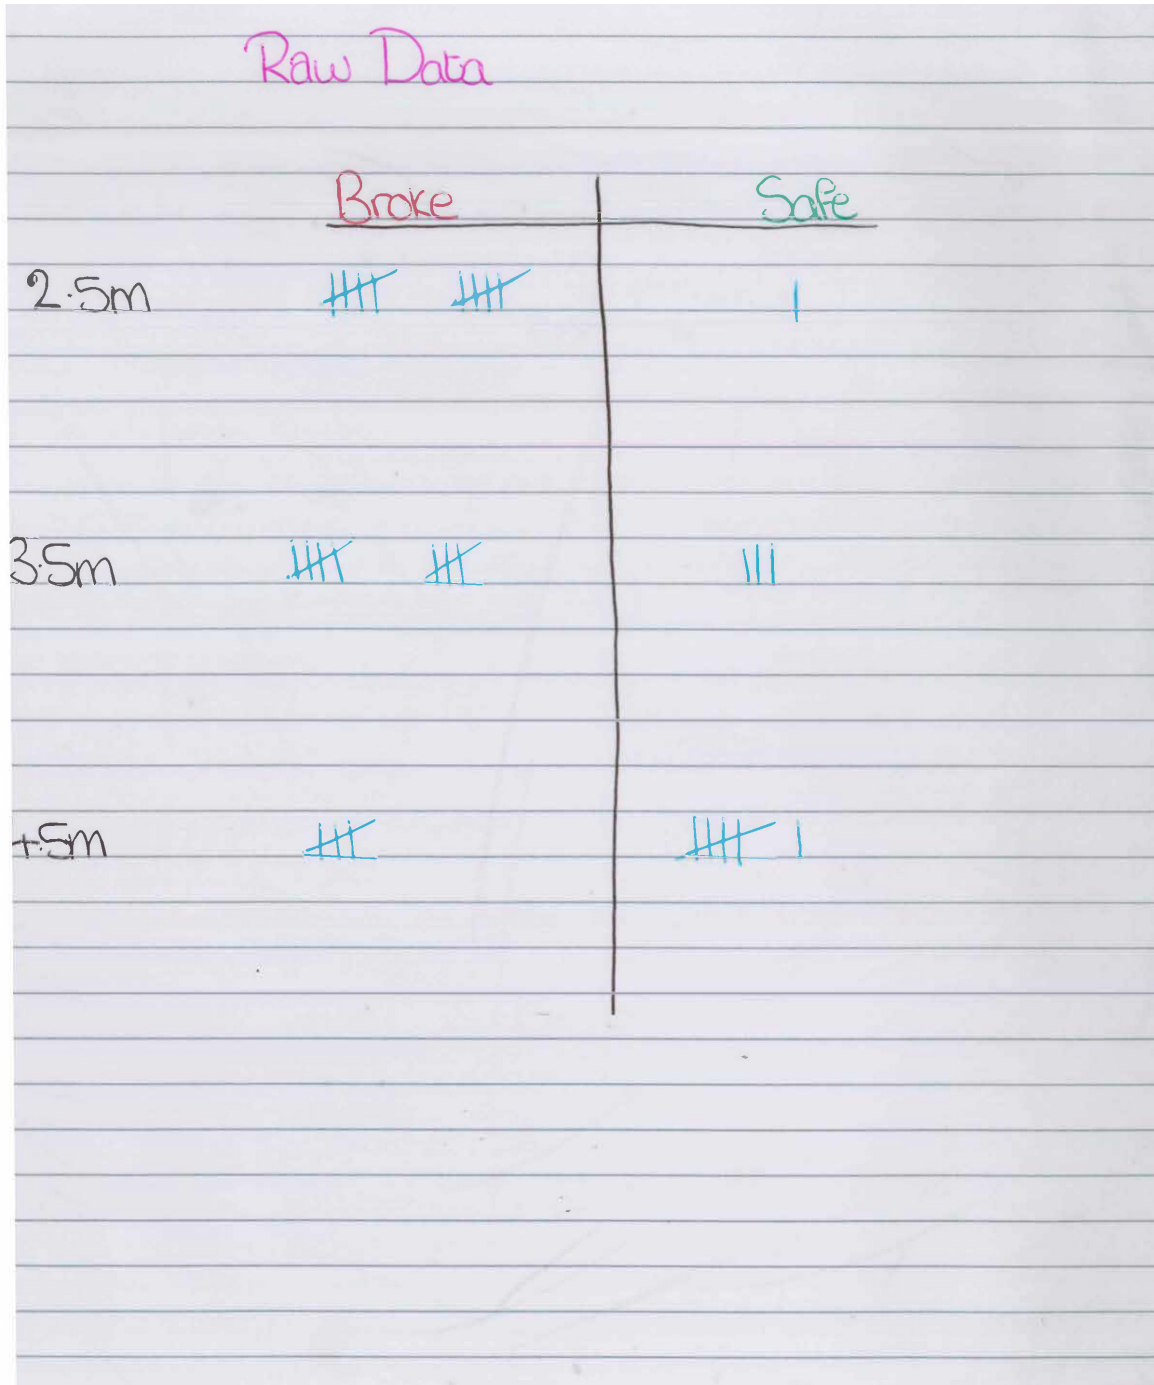 Raw Data
Broke Safe
2.5m
3.5m
4.5m